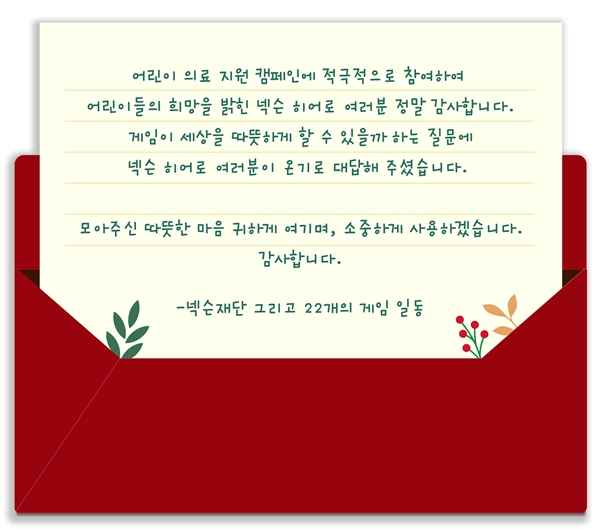 어린이 의료 지원 캠페인에 적극적으로 참여하여
어린이들의 희망을 밝힌 넥슨 히어로 여러분 정말 감사합니다.
게임이 세상을 따뜻하게 할 수 있을까 하는 질문에
넥슨 히어로 여러분이 온기로 대답해 주셨습니다.
모아주신 따뜻한 마음 귀하게 여기며, 소중하게 사용하겠습니다.
감사합니다.
-넥슨재단 그리고 22개의 게임 일동